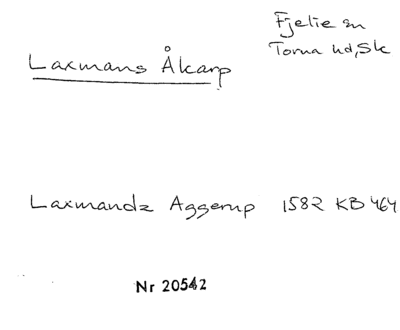 Fjelie sn
Torna hd, Sk
Laxmans Åkarp
Laxmandz Aggerup 1582 KB 464
Nr 20542